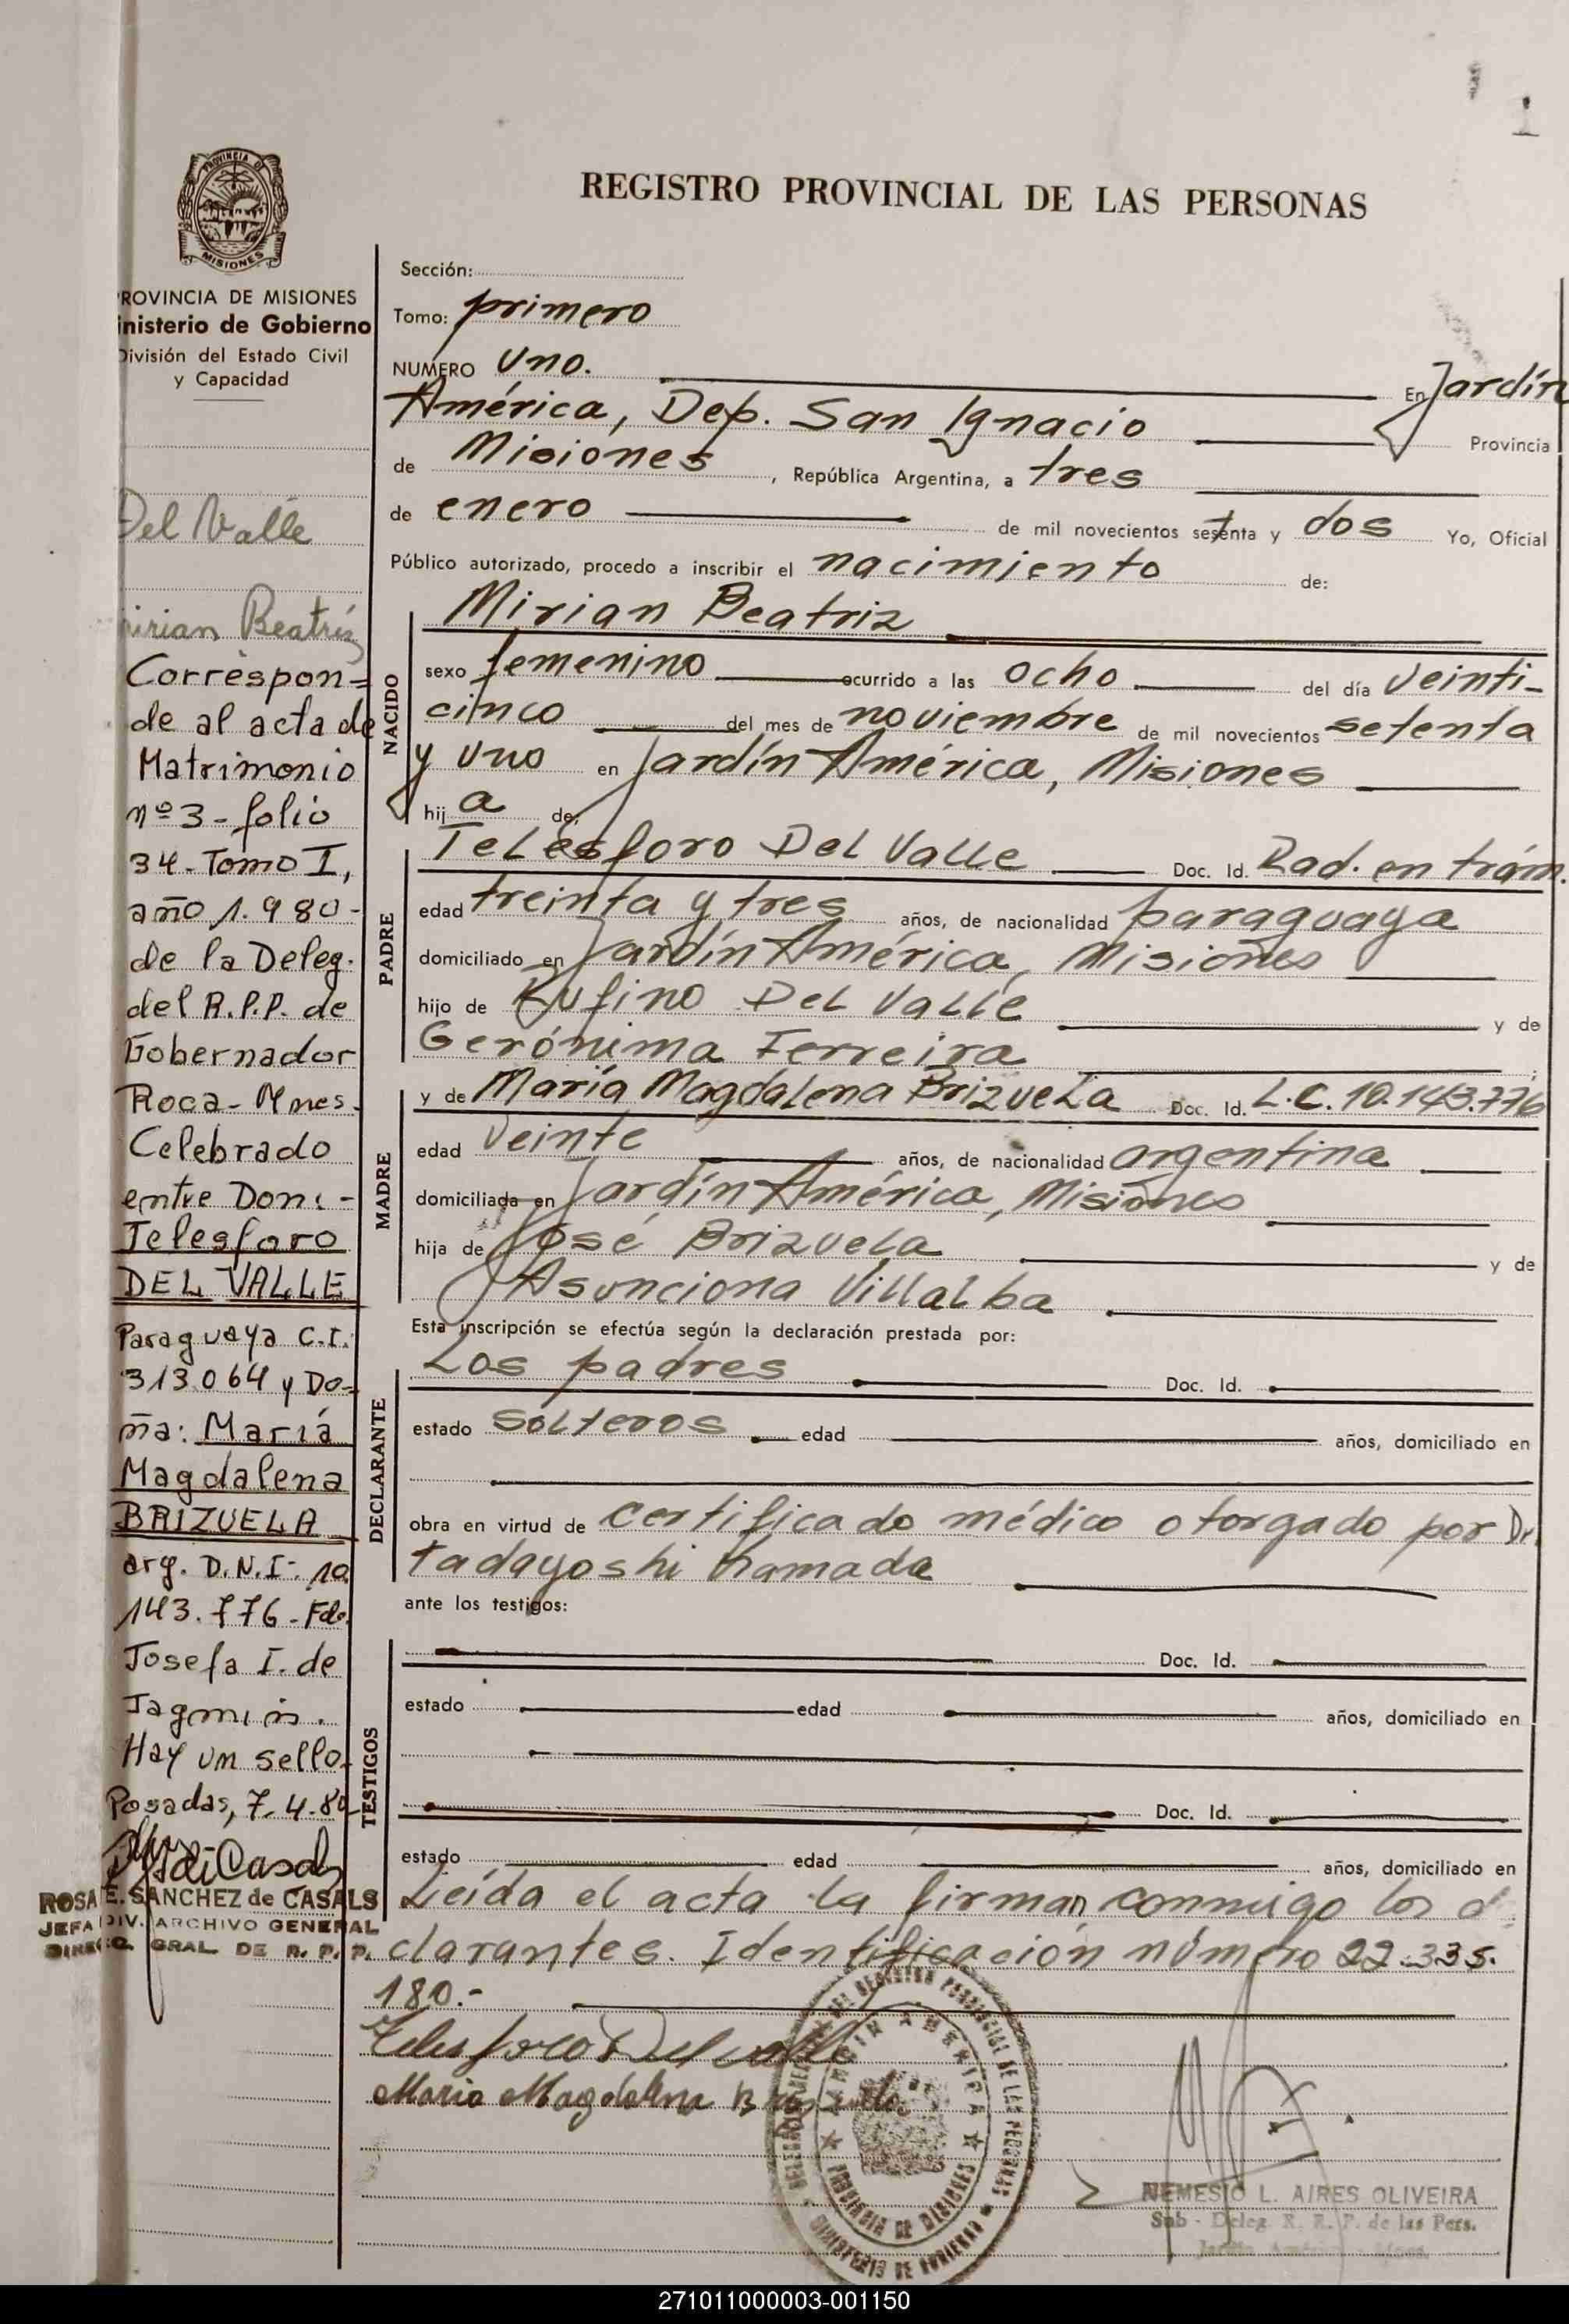 1
REGISTRO PROVINCIAL DE LAS PERSONAS
PROVINCIA DE
MISIONES
ROVINCIA DE MISIONES
inisterio de Gobierno
División del Estado Civil
y Capacidad
Del Valle
irian Beatríz
Correspon=
de al acta de
Matrimonio
nº 3 - folio
34 - Tomo I,
año 1.980-
de la Deleg.
del R.P.P. de
Gobernador
Roca - Mnes.
Celebrado
entre Don: -
Telesforo
DEL VALLE
Paraguaya C.I.
313.064 y Do=
ña: María
Magdalena
BRIZUELA
arg. D.N.I. 10.
143.776 - Fdo.
Josefa I. de
Hay un sello.
Posadas, 7-4-80
ROSA E. SANCHEZ de CASALS
JEFA DIV. ARCHIVO GENERAL
DIRECC. GRAL. DE R. P. P.
Sección:
Tomo: primero
NUMERO uno. En Jardín
América, Dep. San Ignacio Provincia
de Misiones, República Argentina, a tres
de enero de mil novecientos setenta y dos Yo, Oficial
Público autorizado, procedo a inscribir el nacimiento de:
NACIDO
Mirian Beatriz
sexo femenino ocurrido a las ocho del día veinti-
cinco del mes de noviembre de mil novecientos setenta
y uno en Jardín América, Misiones
hij a de:
PADRE
Telésforo Del Valle Doc. Id. Rad. en trám.
edad treinta y tres años, de nacionalidad paraguaya
domiciliado en Jardín América, Misiones
hijo de Rufino Del Valle y de
Gerónima Ferreira
MADRE
y de María Magdalena Brizuela Doc. Id. L.C. 10.143.776
edad veinte años, de nacionalidad argentina
domiciliada en Jardín América, Misiones
hija de José Brizuela y de
Asunciona Villalba
Esta inscripción se efectúa según la declaración prestada por:
DECLARANTE
Los padres Doc. Id.
estado solteros edad años, domiciliado en
obra en virtud de certificado médico otorgado por Dr.
Tadayoshi Hamada
ante los testigos:
TESTIGOS
Doc. Id.
estado edad años, domiciliado en
Doc. Id.
estado edad años, domiciliado en
Leída el acta la firman conmigo los d
clarantes. Identificación número 22.335.
180.-
Telesforo Del valle
Maria Magdalena Brizuela
DEL REGISTRO PROVINCIAL DE LAS PERSONAS
JARDIN AMERICA
PROVINCIA DE MISIONES
MINISTERIO DE GOBIERNO
NEMESIO L. AIRES OLIVEIRA
Sub - Deleg. R. P. de las Pers.
271011000003-001150